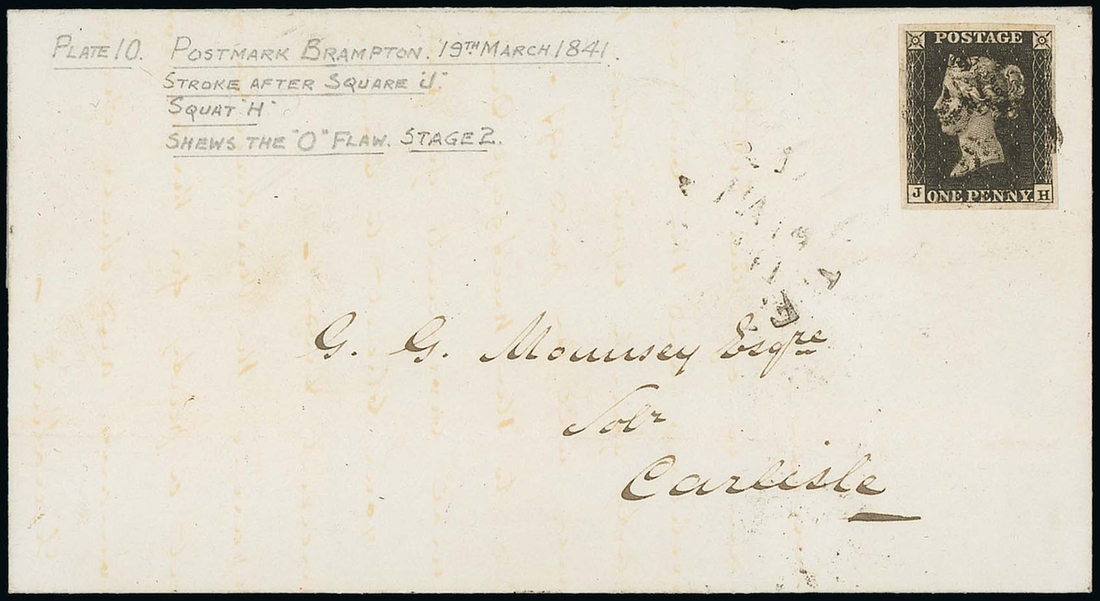 PLATE 10. POSTMARK BRAMPTON. 19TH MARCH 1841.
STROKE AFTER SQUARE "J".
SQUAT "H"
SHEWS THE "O" FLAW. STAGE 2.
POSTAGE
J ONE PENNY H
MA 19
G. G. Mounsey Esqre
Solr
Carlisle